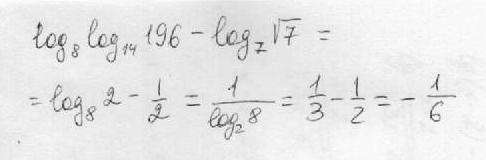 log₈ log₁₄ 196 − log₇ √7 =
= log₈ 2 − 1/2 = 1/log₂ 8 = 1/3 − 1/2 = − 1/6